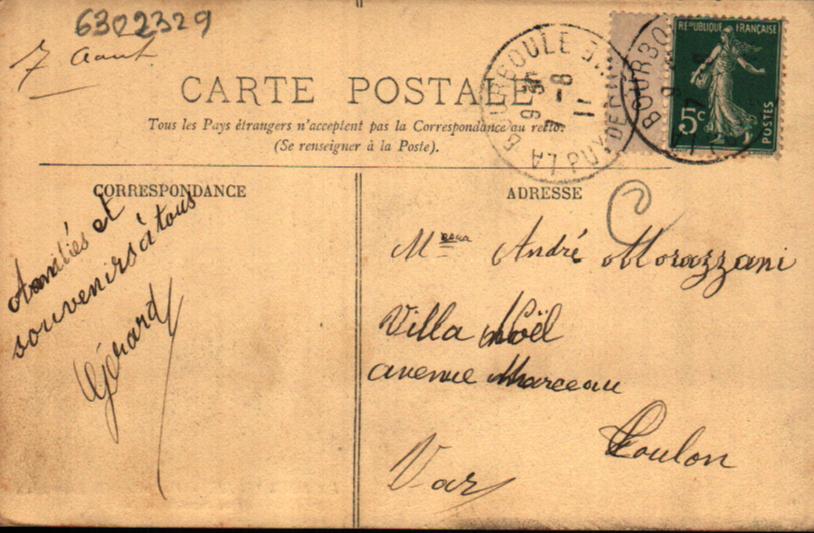 6302329
7 Aout
CARTE POSTALE
Tous les Pays étrangers n'acceptent pas la Correspondance au recto.
(Se renseigner à la Poste).
REPUBLIQUE FRANÇAISE
5c
POSTES
BOURBOULE
LA
PUY DE
8
11
CORRESPONDANCE
Amitiés et
souvenirs à tous
Gérard
ADRESSE
André Morazzani
Villa Noël
avenue Marceau
Toulon
Var